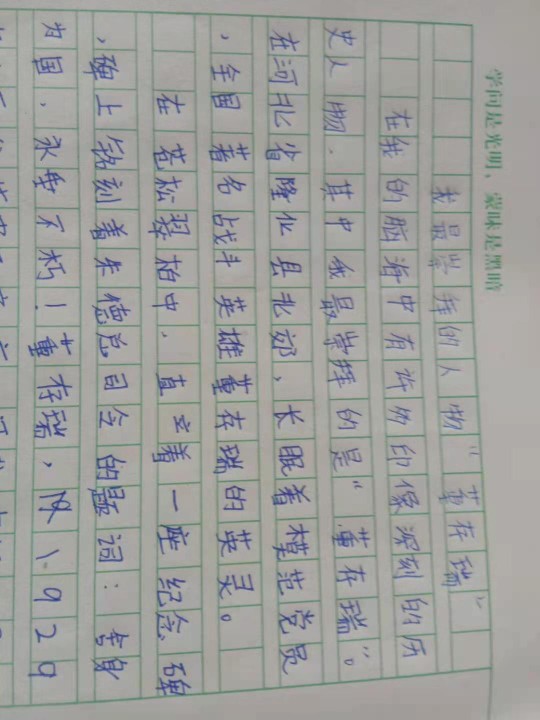 学问是光明，蒙昧是黑暗
我最崇拜的人物“董存瑞”
在我的脑海中有许多印像深刻的历
史人物．其中我最崇拜的是“董存瑞”。
在河北省隆化县北郊，长眠着模范党员
，全国著名战斗英雄董存瑞的英灵。
在苍松翠柏中．直立着一座纪念碑
，碑上铭刻着朱德总司令的题词：舍身
为国．永垂不朽！董存瑞，1929